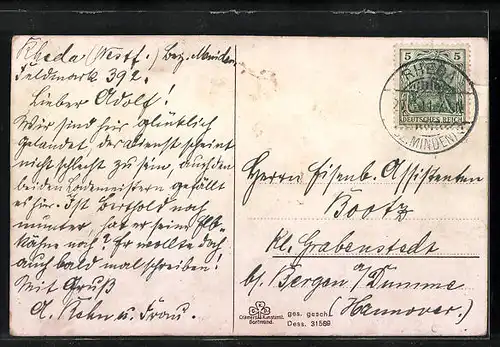 Rheda (Westf.) Bez. Minden
Feldmark 392.
Lieber Adolf!
Wir sind hier glücklich
gelandet, der Dienst scheint
nicht schlecht zu sein, auch den
beiden Lademeistern gefällt
es hier. Ist Berthold noch
munter, hat er seine
kähne noch? Er wollte doch
auch bald mal schreiben!
Mit Gruß
A. Kehn u. Frau.
5 5
DEUTSCHES REICH
RHEDA
MINDEN
Herrn Eisenb. Assistenten
Bootz
Kl. Grabenstedt
b/ Bergen a/Dumme
(Hannover.)
Cramers Kunstanst.
Dortmund.
ges. gesch.
Dess. 31569